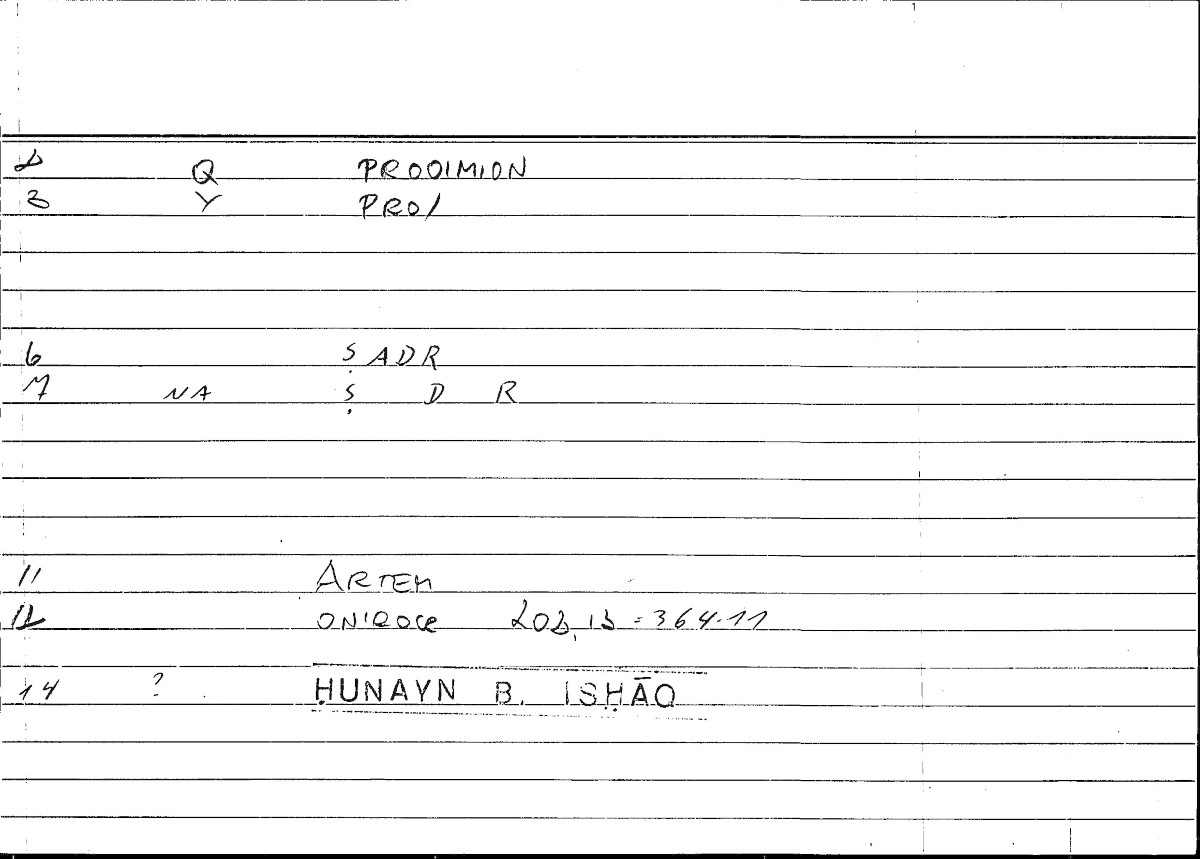 2 Q PROOIMION
3 Y PRO/
6 ṢADR
7 NA Ṣ D R
11 ARTEM
12 ONIROCR 203,13 = 364.11
14 ? ḤUNAYN B. ISḤĀQ